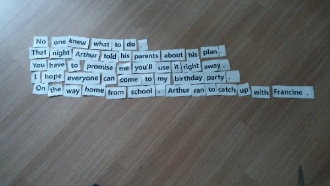 No one knew what to do.
That night Arthur told his parents about his plan.
You have to promise me you'll use it right away.
I hope everyone can come to my birthday party.
On the way home from school, Arthur ran to catch up with Francine.